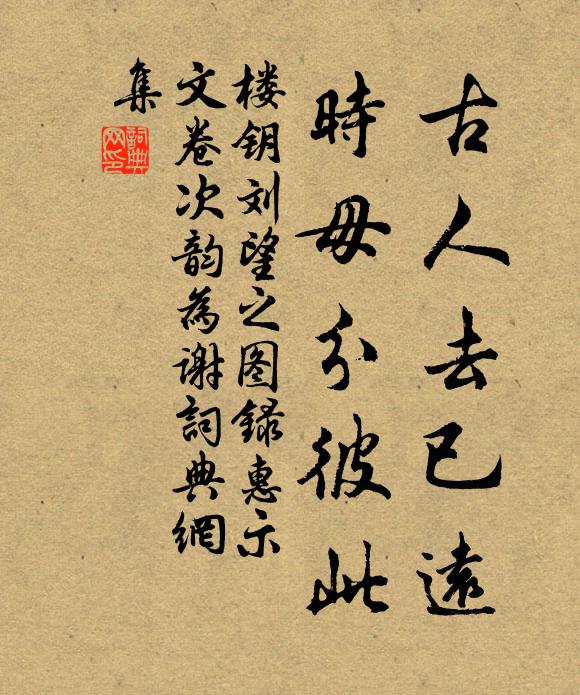 古人去已遠
時毋分彼此
楼钥刘望之图録惠示
文卷次韵為谢詞典網
集
詞典
网印